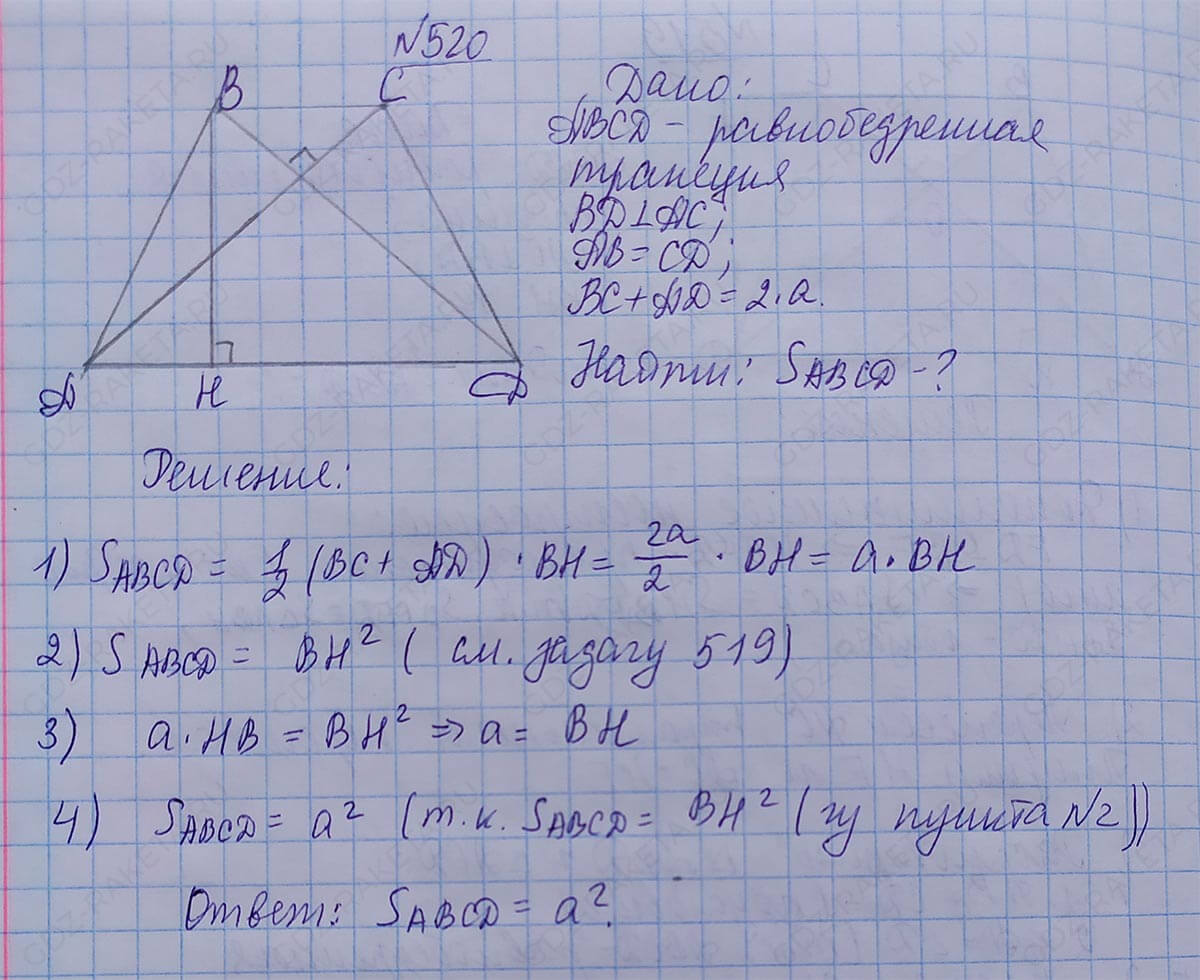 №520
B C
Дано:
ABCD - равнобедренная
трапеция
BD⊥AC;
AB = CD;
BC + AD = 2·a.
Найти: SABCD - ?
A H D
Решение:
1) SABCD = 1/2 (BC + AD) · BH = 2a/2 · BH = a · BH
2) SABCD = BH² ( см. задачу 519)
3) a · HB = BH² ⇒ a = BH
4) SABCD = a² (т.к. SABCD = BH² (из пункта №2))
Ответ: SABCD = a².